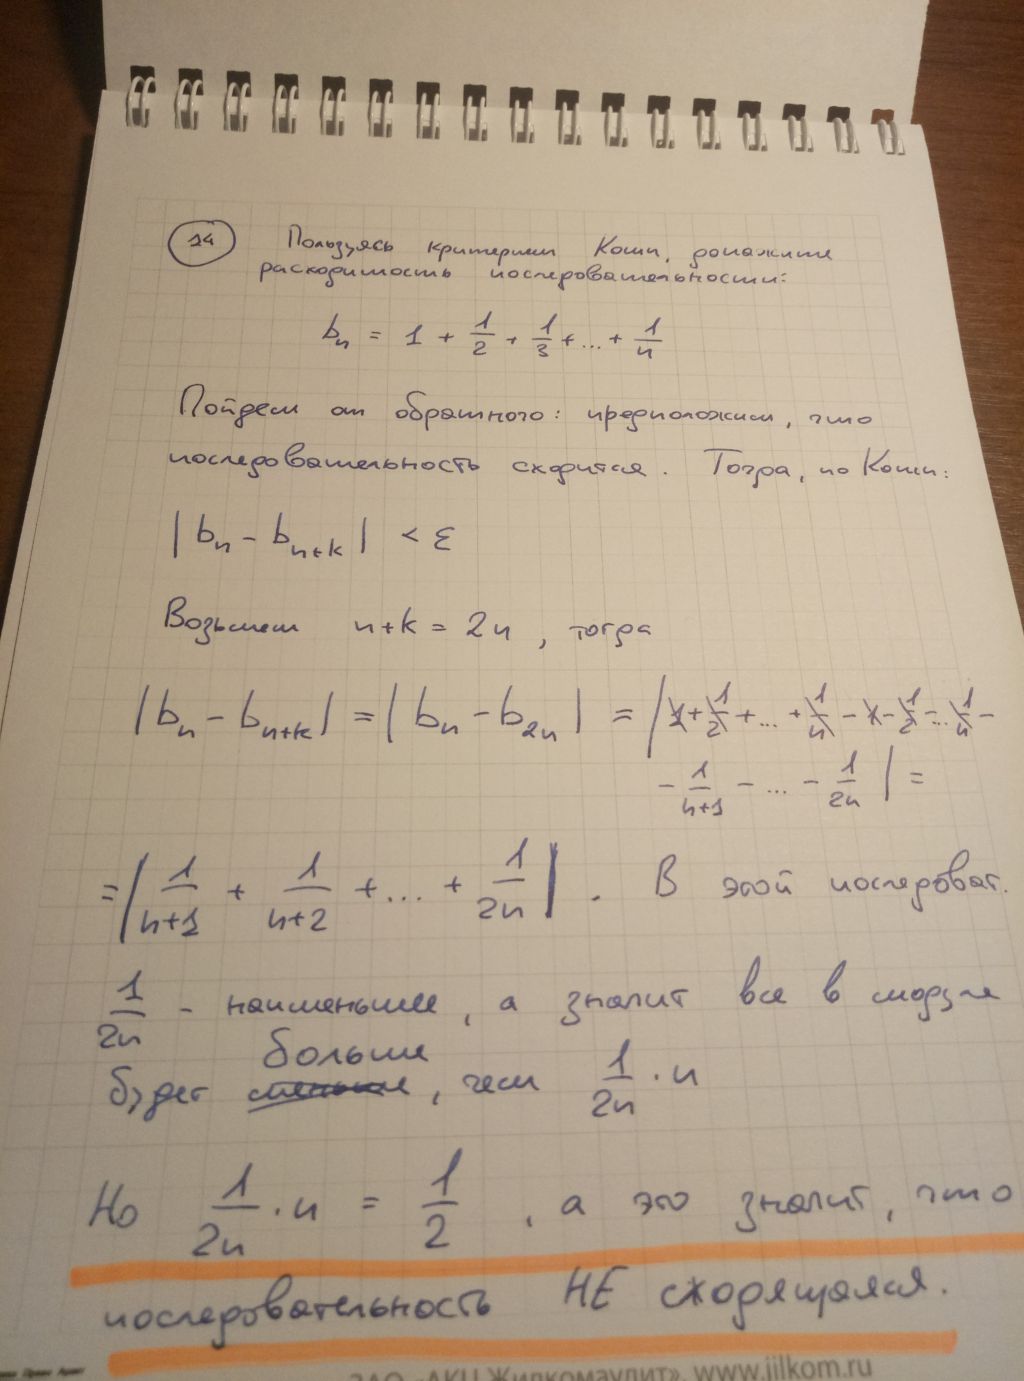 14 Пользуясь критерием Коши, докажите
расходимость последовательности:
bₙ = 1 + 1/2 + 1/3 + ... + 1/n
Пойдем от обратного: предположим, что
последовательность сходится. Тогда, по Коши:
|bₙ - bₙ₊ₖ| < ε
Возьмем n+k = 2n, тогда
|bₙ - bₙ₊ₖ| = |bₙ - b₂ₙ| = |1 + 1/2 + ... + 1/n - 1 - 1/2 - ... 1/n -
- 1/(n+1) - ... - 1/2n| =
= |1/(n+1) + 1/(n+2) + ... + 1/2n| . В этой последоват.
1/2n - наименьшее, а значит все в модуле
больше
будет меньше, чем 1/2n · n
Но 1/2n · n = 1/2, а это значит, что
последовательность НЕ сходящаяся.
ЗАО «АКЦ Жилкомаудит», www.jilkom.ru